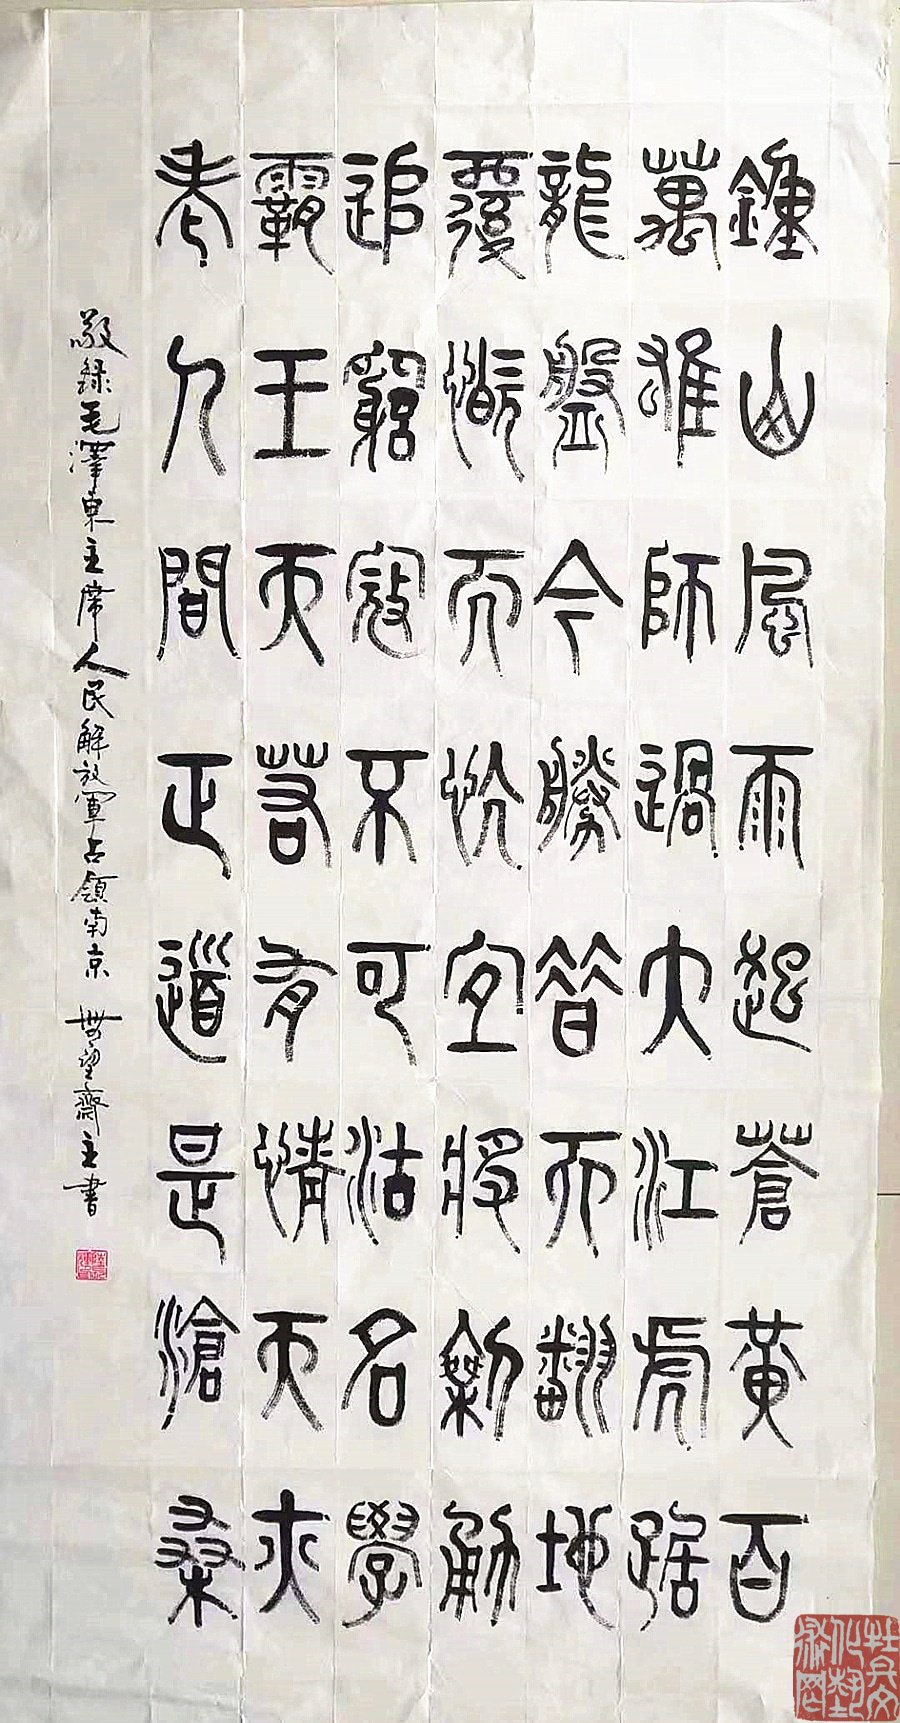 鍾山風雨起蒼黃百
萬雄師過大江虎踞
龍盤今勝昔天翻地
覆慨而忼宜將剩勇
追窮寇不可沽名學
霸王天若有情天亦
老人間正道是滄桑
敬錄毛澤東主席人民解放軍占領南京 無望齋主書